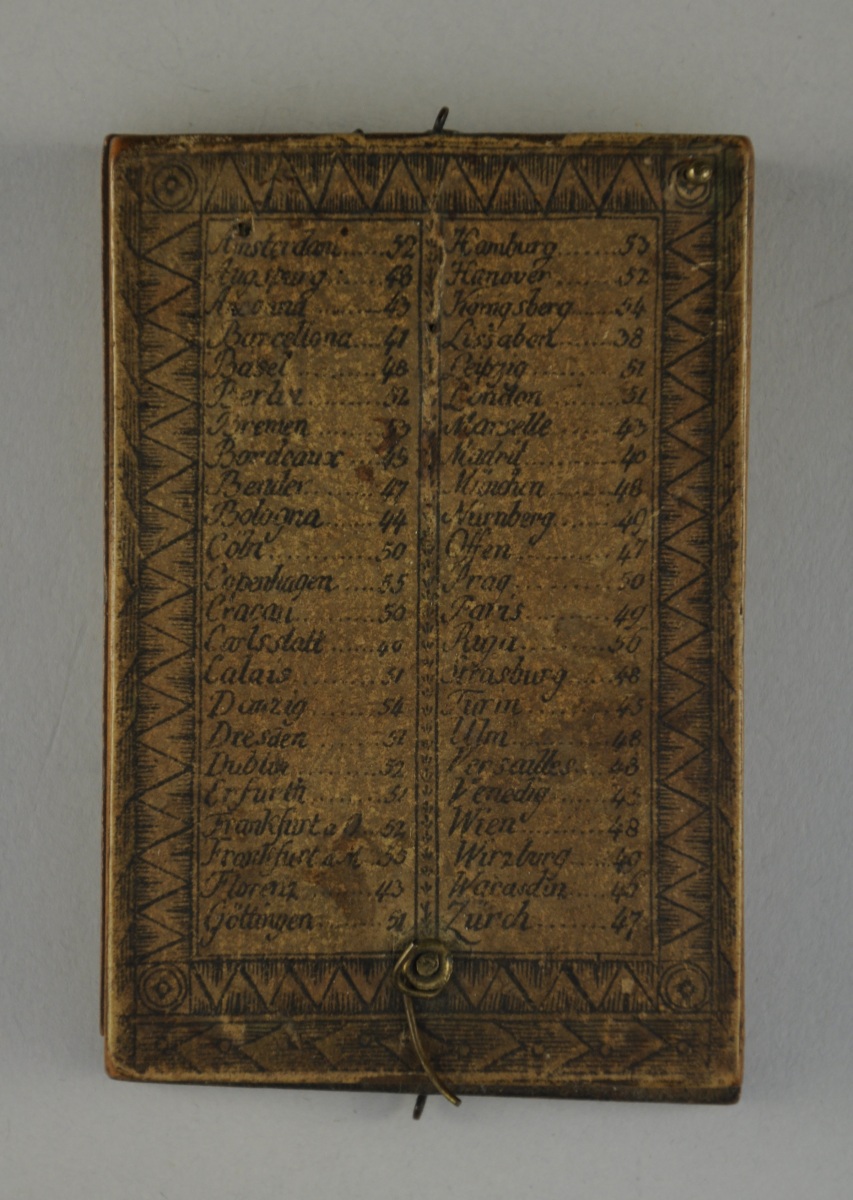 Amsterdam ..... 52
Augspurg ..... 48
Ancona ..... 43
Barcellona ..... 41
Basel ..... 48
Berlin ..... 52
Bremen ..... 53
Bordeaux ..... 45
Bender ..... 47
Bologna ..... 44
Cöln ..... 50
Copenhagen ..... 55
Cracau ..... 50
Carlsstatt .....
Calais ..... 51
Danzig ..... 54
Dresden ..... 51
Dublin ..... 52
Erfurth ..... 51
Frankfurt a O ..... 52
Frankfurt a M .....
Florenz ..... 43
Göttingen ..... 51
Hamburg ..... 53
Hanover ..... 52
Königsberg ..... 54
Lissabon ..... 38
Leipzig ..... 51
London ..... 51
Marselle ..... 43
Madrit ..... 40
München ..... 48
Nürnberg ..... 49
Offen ..... 47
Prag ..... 50
Paris ..... 49
Riga ..... 56
Strasburg ..... 48
Turin ..... 45
Ulm ..... 48
Versailles ..... 48
Venedig ..... 45
Wien ..... 48
Wirzburg ..... 49
Warasdin ..... 46
Zürch ..... 47